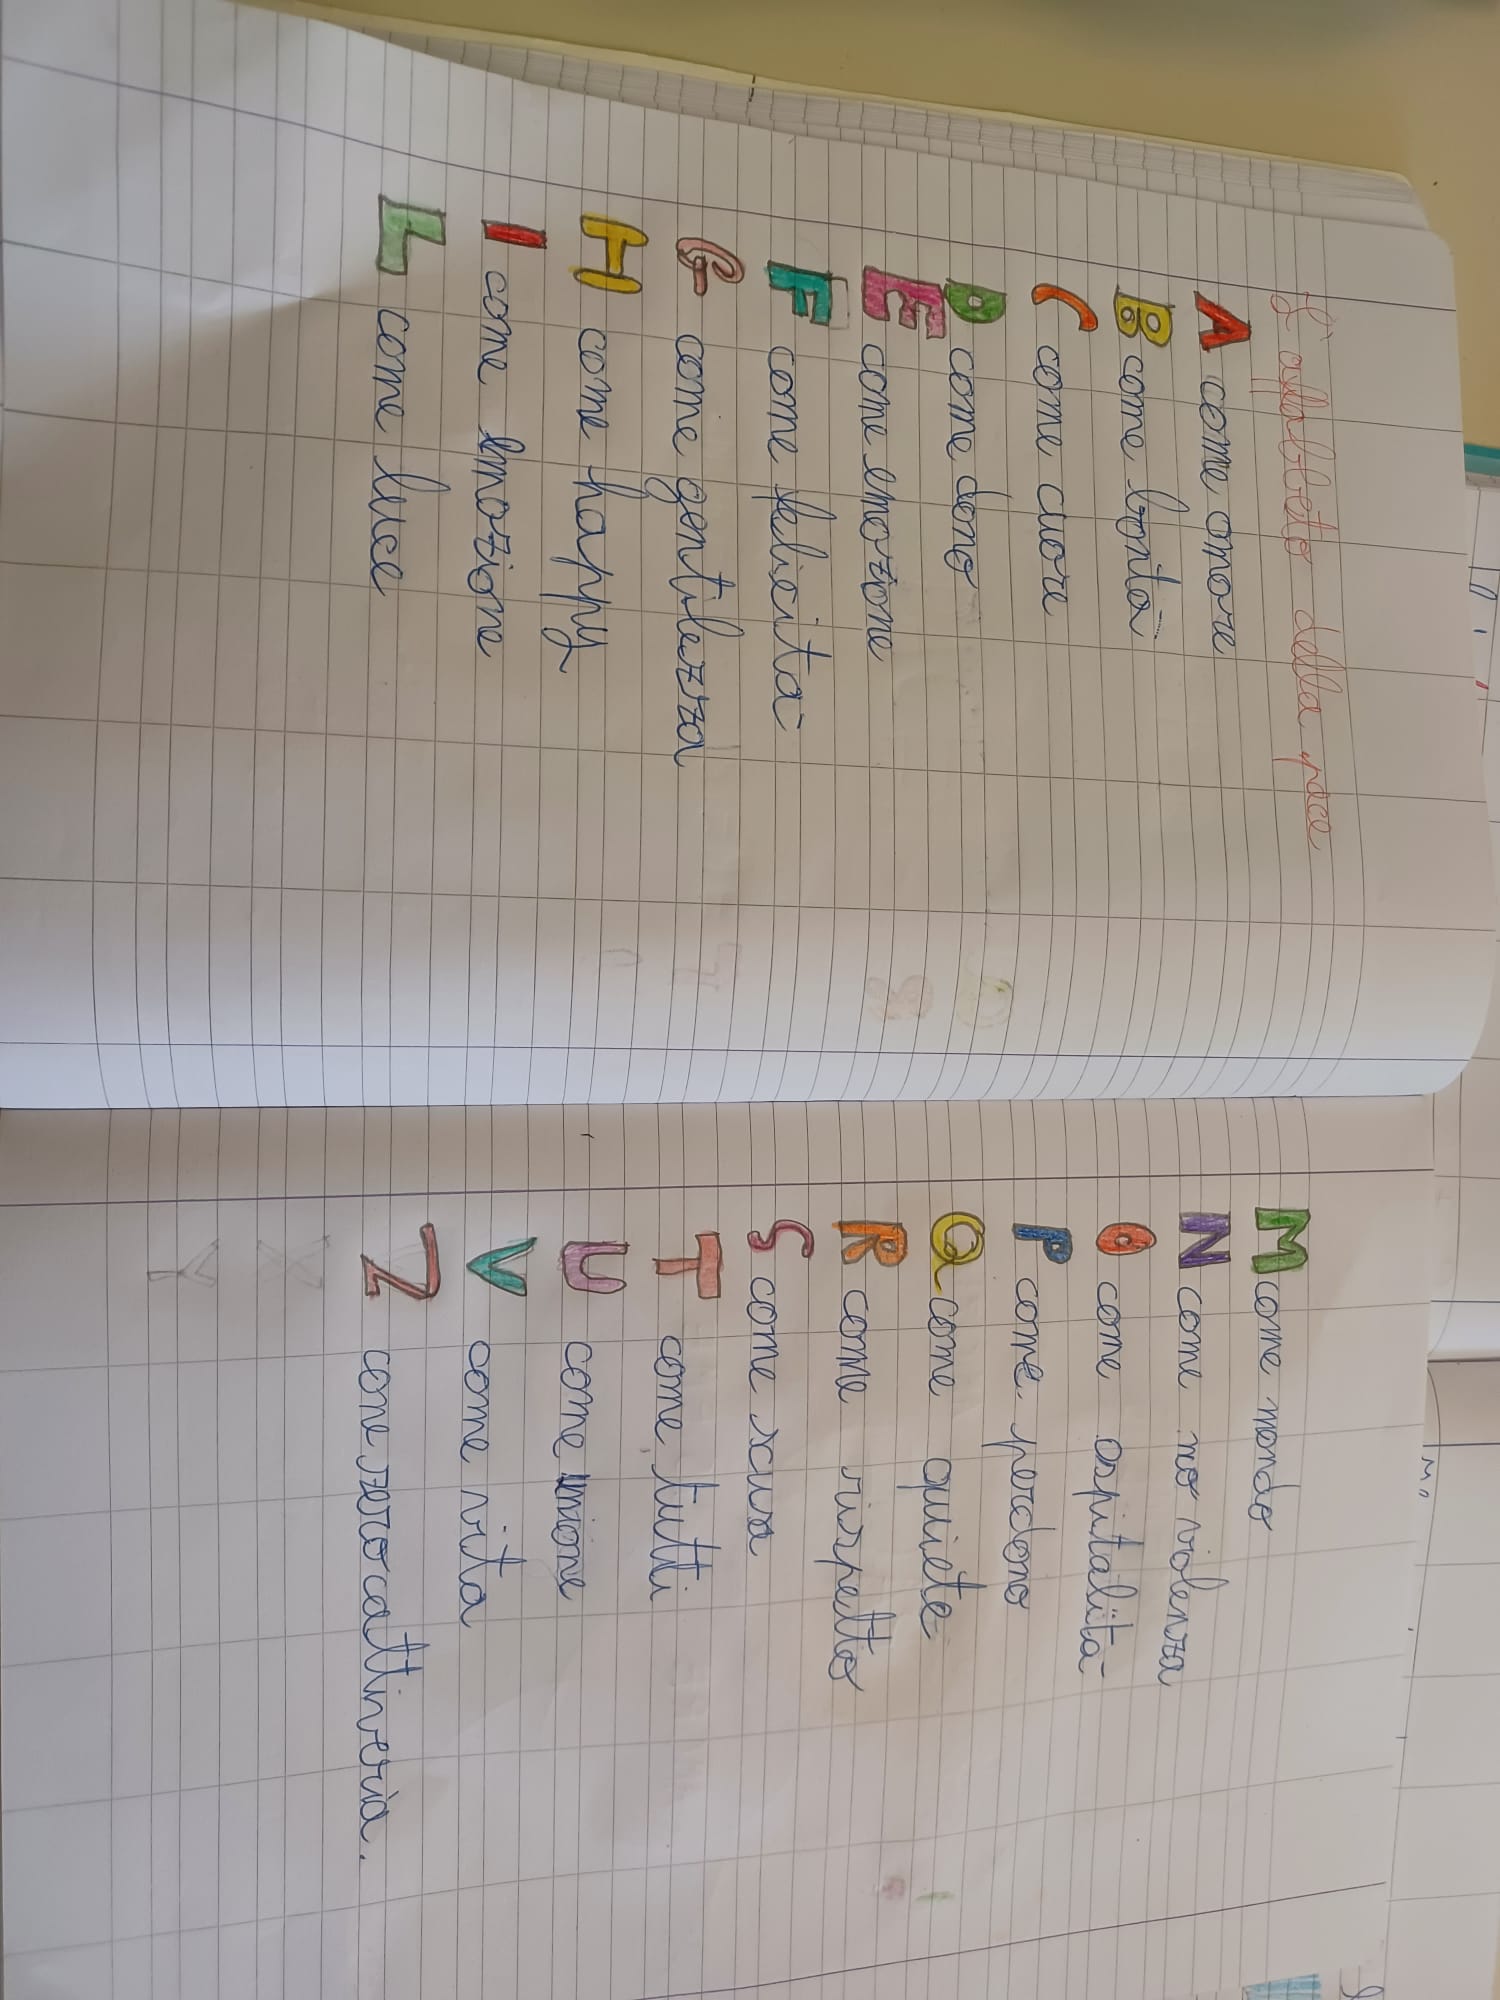 L'alfabeto della pace
A come amore
B come bontà
C come cuore
D come dono
E come emozione
F come felicità
G come gentilezza
H come happy
I come emozione
L come luce
M come mondo
N come no violenza
O come ospitalità
P come perdono
Q come quiete
R come rispetto
S come scusa
T come tutti
U come unione
V come vita
Z come zero cattiveria.
X
Y